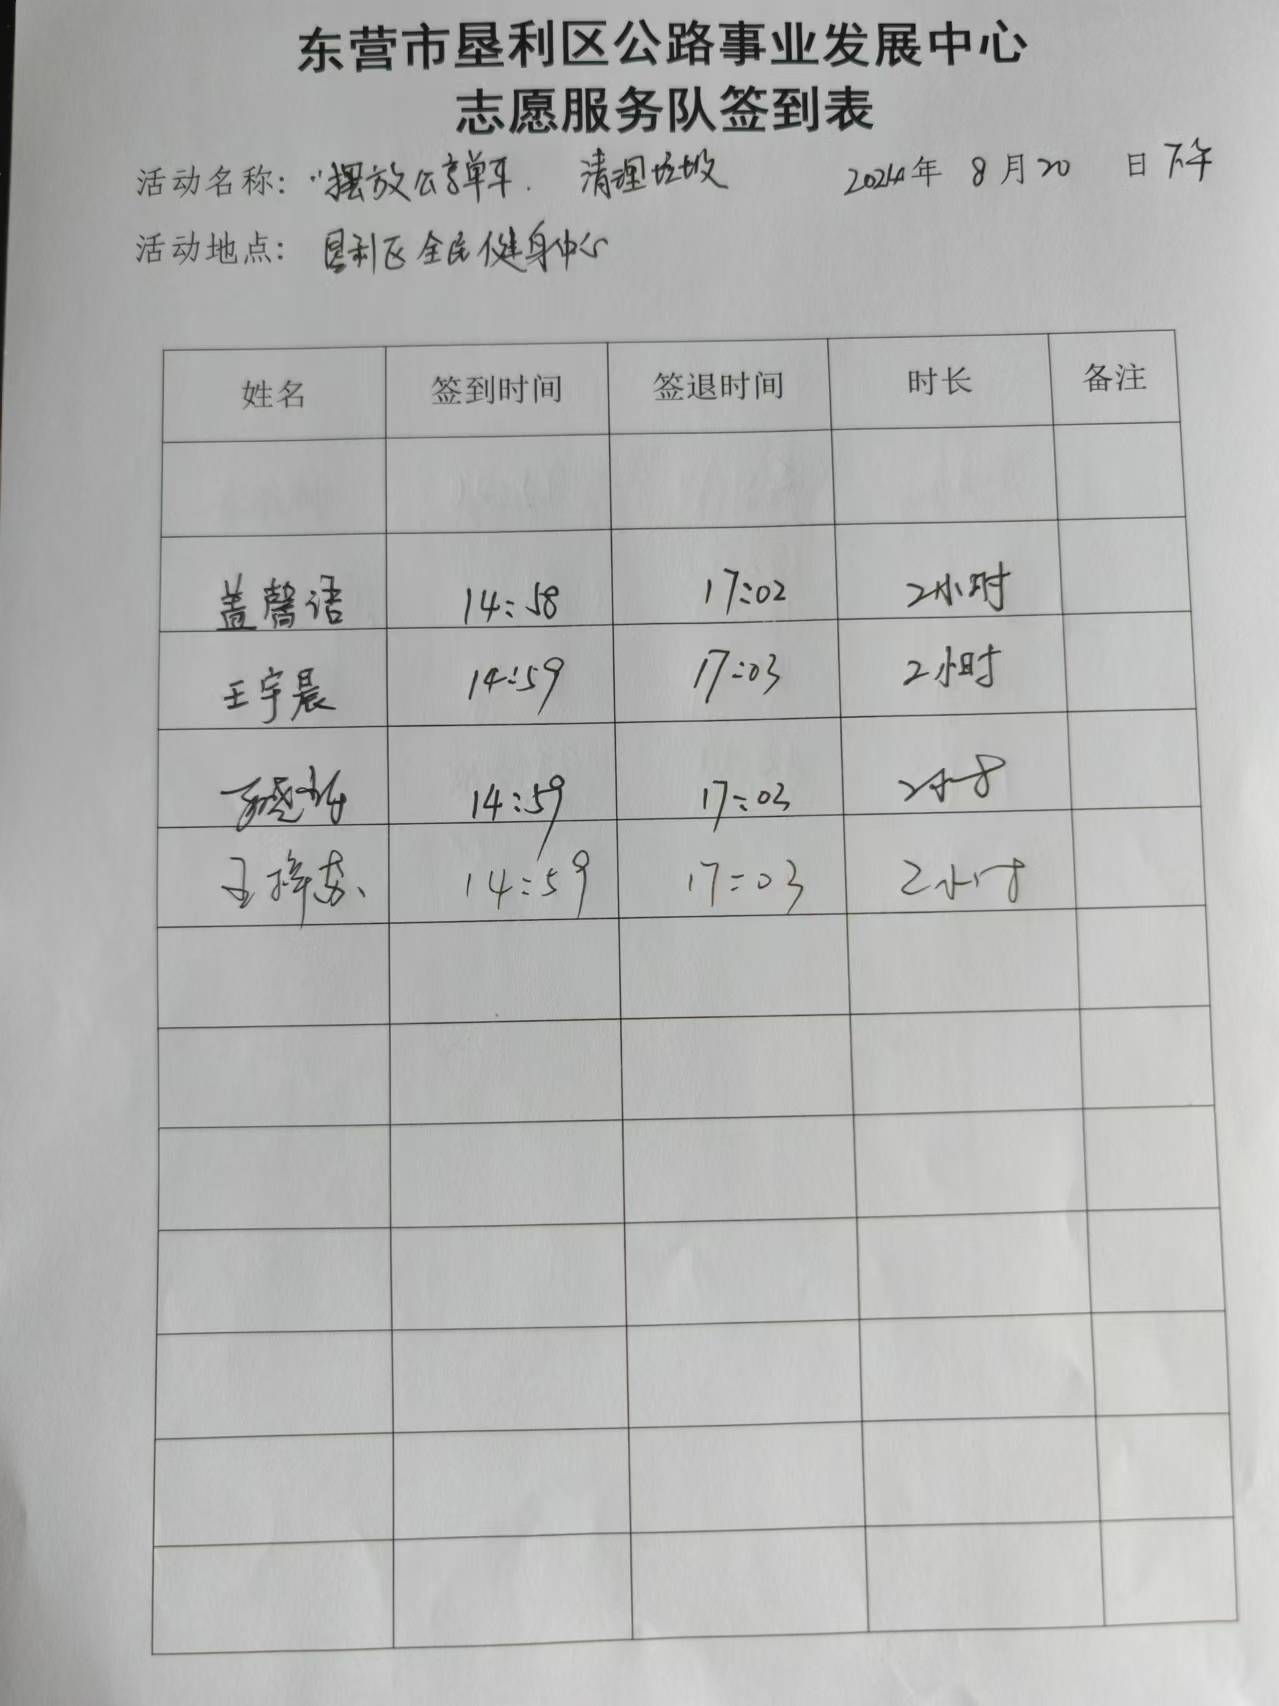 东营市垦利区公路事业发展中心
志愿服务队签到表
活动名称：“摆放公享单车、清理垃圾 2024年 8月20 日 下午
活动地点：垦利区全民健身中心
姓名 签到时间 签退时间 时长 备注
盖馨语 14:58 17:02 2小时
王宇晨 14:59 17:03 2小时
14:59 17:03 2小时
14:59 17:03 2小时